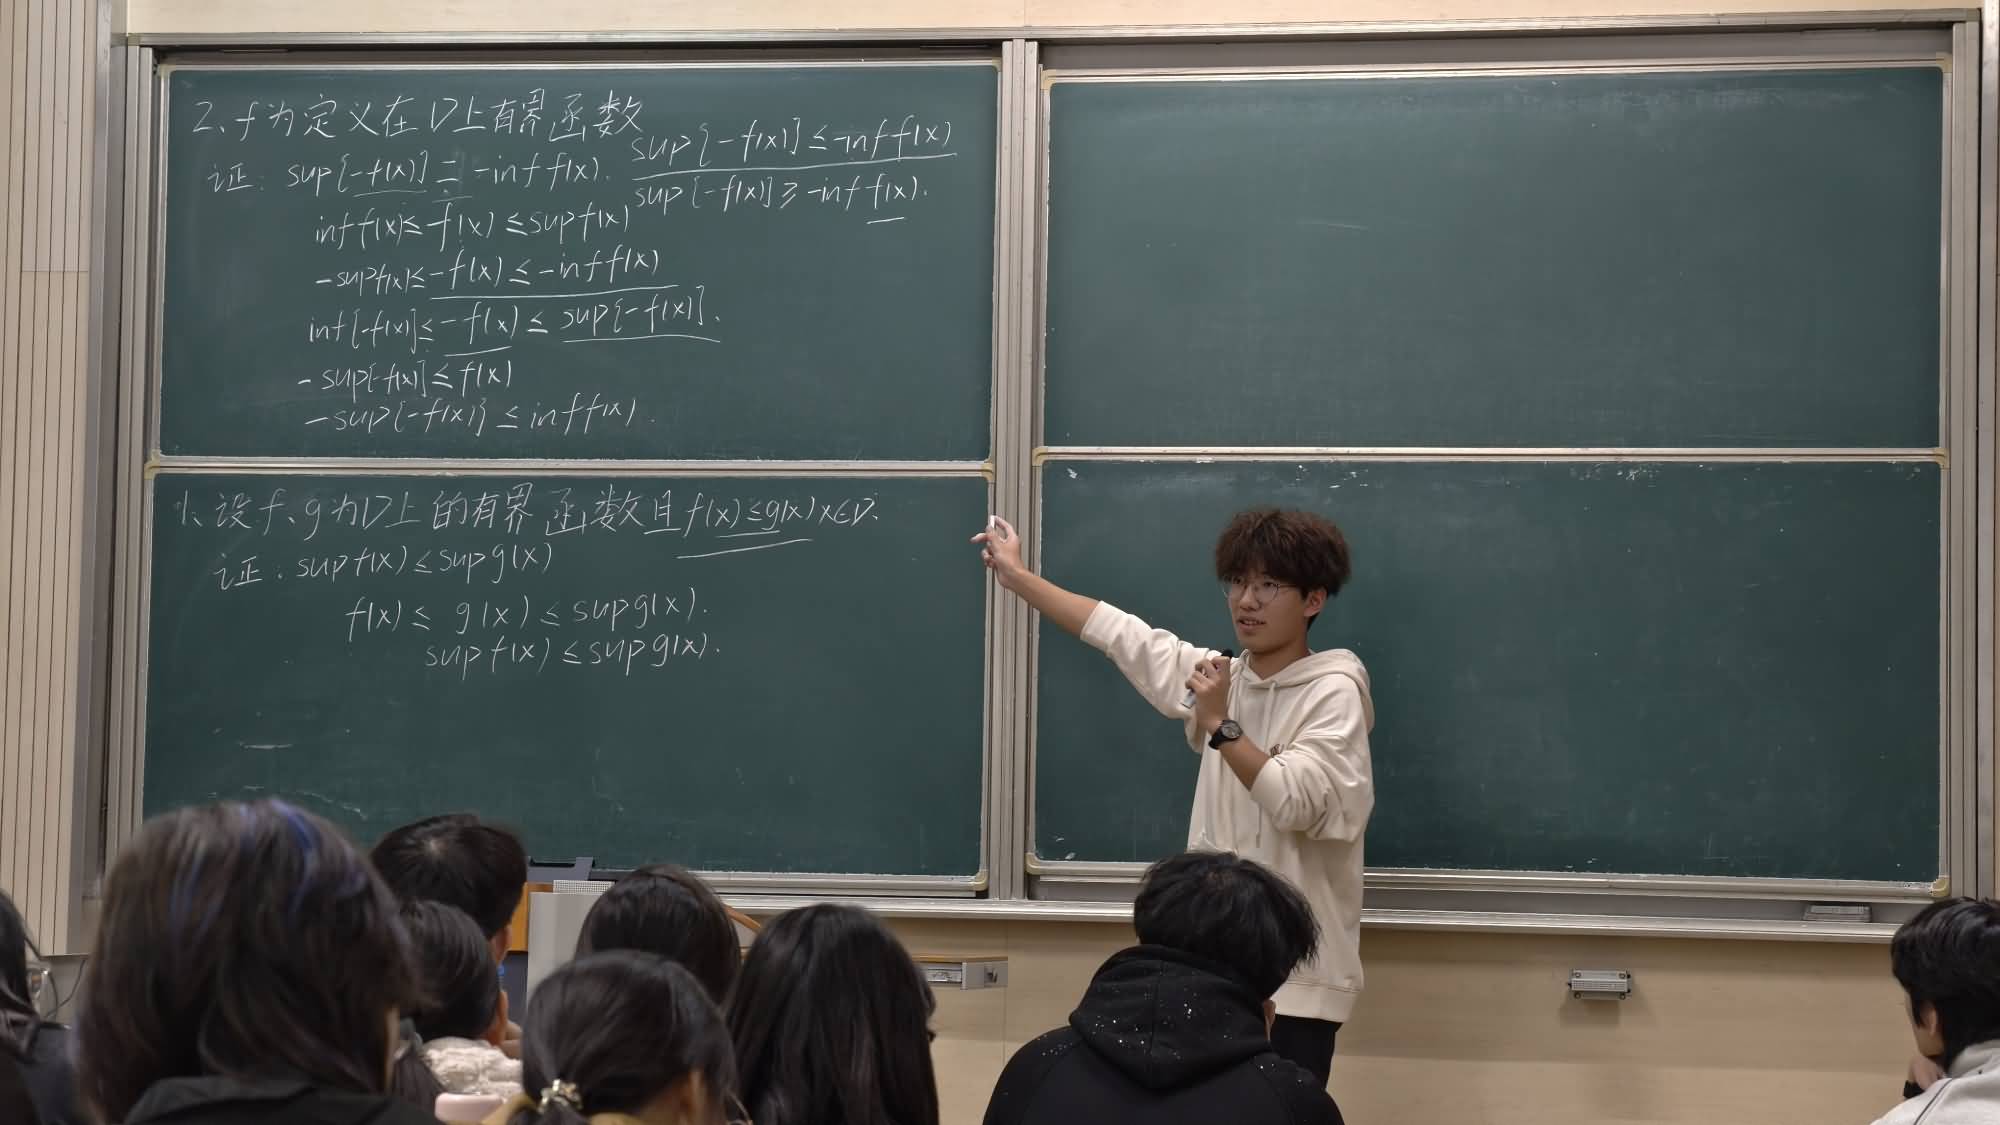 2、f为定义在D上有界函数
证: sup{-f(x)} = -inf f(x).
sup{-f(x)} ≤ -inf f(x)
sup{-f(x)} ≥ -inf f(x).
inf f(x) ≤ f(x) ≤ sup f(x)
-sup f(x) ≤ -f(x) ≤ -inf f(x)
inf{-f(x)} ≤ -f(x) ≤ sup{-f(x)}.
-sup{-f(x)} ≤ f(x)
-sup{-f(x)} ≤ inf f(x).
1、设f、g为D上的有界函数且f(x)≤g(x) x∈D.
证: sup f(x) ≤ sup g(x)
f(x) ≤ g(x) ≤ sup g(x).
sup f(x) ≤ sup g(x).